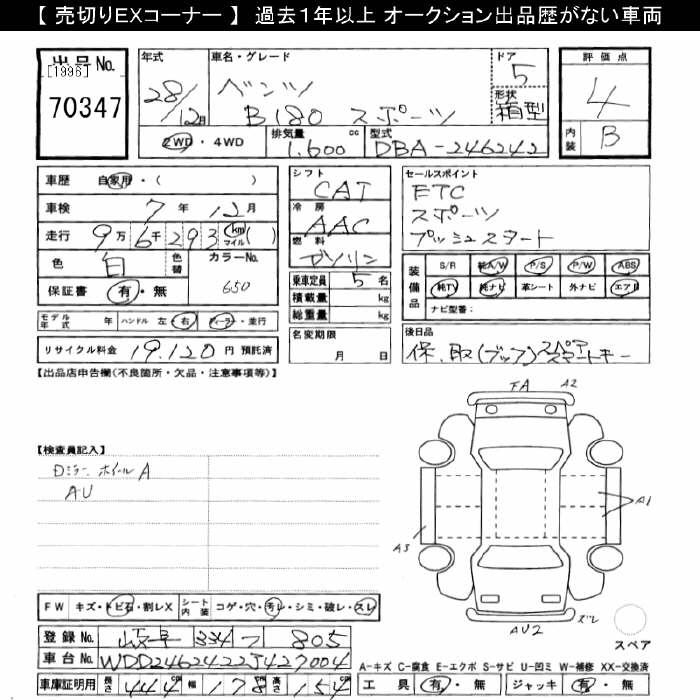 【 売切りEXコーナー 】 過去1年以上 オークション出品歴がない車両
出品No.
[1996]
70347
年式 28/12月
車名・グレード ベンツ
B180 スポーツ
ドア 5
形状 箱型
2WD ・ 4WD
排気量 1.600 cc
型式 DBA-246242
評価点
4
内装 B
車歴 自家用・( )
車検 7 年 12 月
走行 9万 6千 293 km マイル ( )
色 白 色替 カラーNo. 650
保証書 有・無
モデル年式 年 ハンドル 左・右 ディーラー・並行
リサイクル料金 19.120 円 預託済
シフト CAT
冷房 AAC
燃料 ガソリン
乗車定員 5 名
積載量 kg
総重量 kg
名変期限
月 日
セールスポイント
ETC
スポーツ
プッシュスタート
装備品 S/R 純A/W P/S P/W ABS
純TV 純ナビ 革シート 外ナビ エアB
ナビ型番:
後日品
保.取(ブック)
【出品店申告欄(不良箇所・欠品・注意事項等)】
【検査員記入】
Dミラー ホイールA
AU
FA A2
A1
A3
AU2 ズレ
スペア
FW キズ・トビ石・割レX シート内装 コゲ・穴・汚レ・シミ・破レ・スレ
登録No. 334 フ 805
車台No. WDD2462422J427004
車庫証明用 長さ 444 幅 178 高さ 154
A-キズ C-腐食 E-エクボ S-サビ U-凹ミ W-補修 XX-交換済
工具 有・無 ジャッキ 有・無